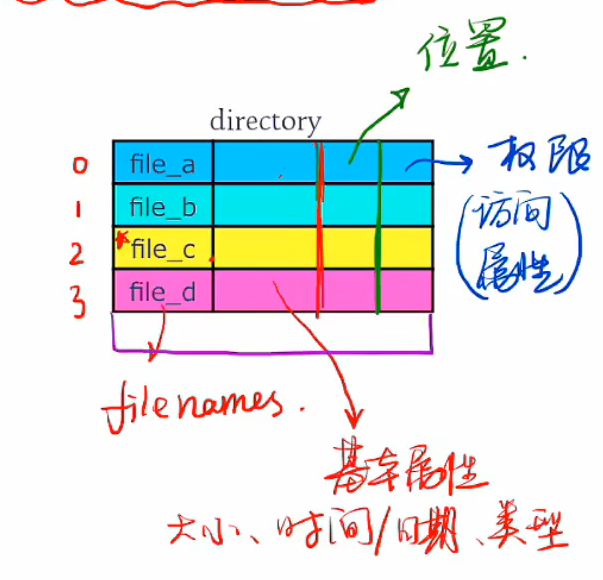 位置.
directory
0 file_a 权限
1 file_b (访问
2 *file_c 属性)
3 file_d
filenames.
基本属性
大小、时间/日期、类型